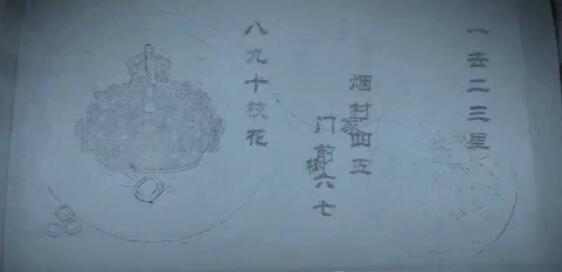 一去二三里
烟村家四五
门前树六七
八九十枝花